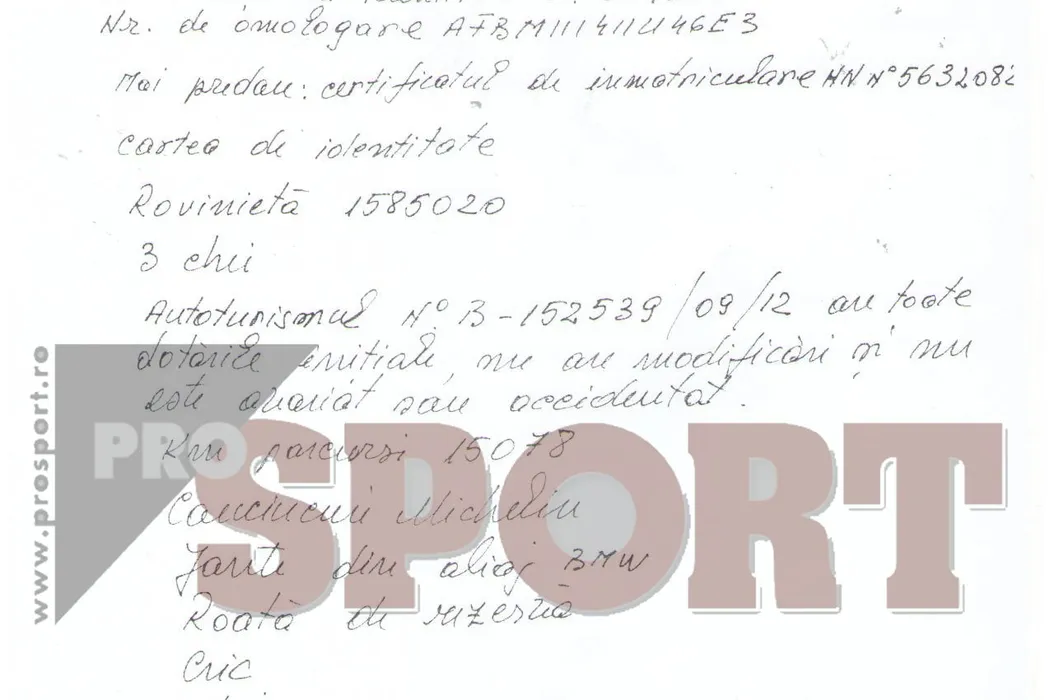 Nr. de omologare AFBM111411U46E3
Mai predau: certificatul de inmatriculare HN N° 5632082
cartea de identitate
Rovinietă 1585020
3 chei
Autoturismul N° B-152539/09/12 are toate
dotările initiale, nu are modificări și nu
este avariat sau accidentat.
Km parcursi 15078
Cauciucuri Michelin
Jante din aliaj BMW
Roată de rezervă
Cric
PRO SPORT
www.prosport.ro